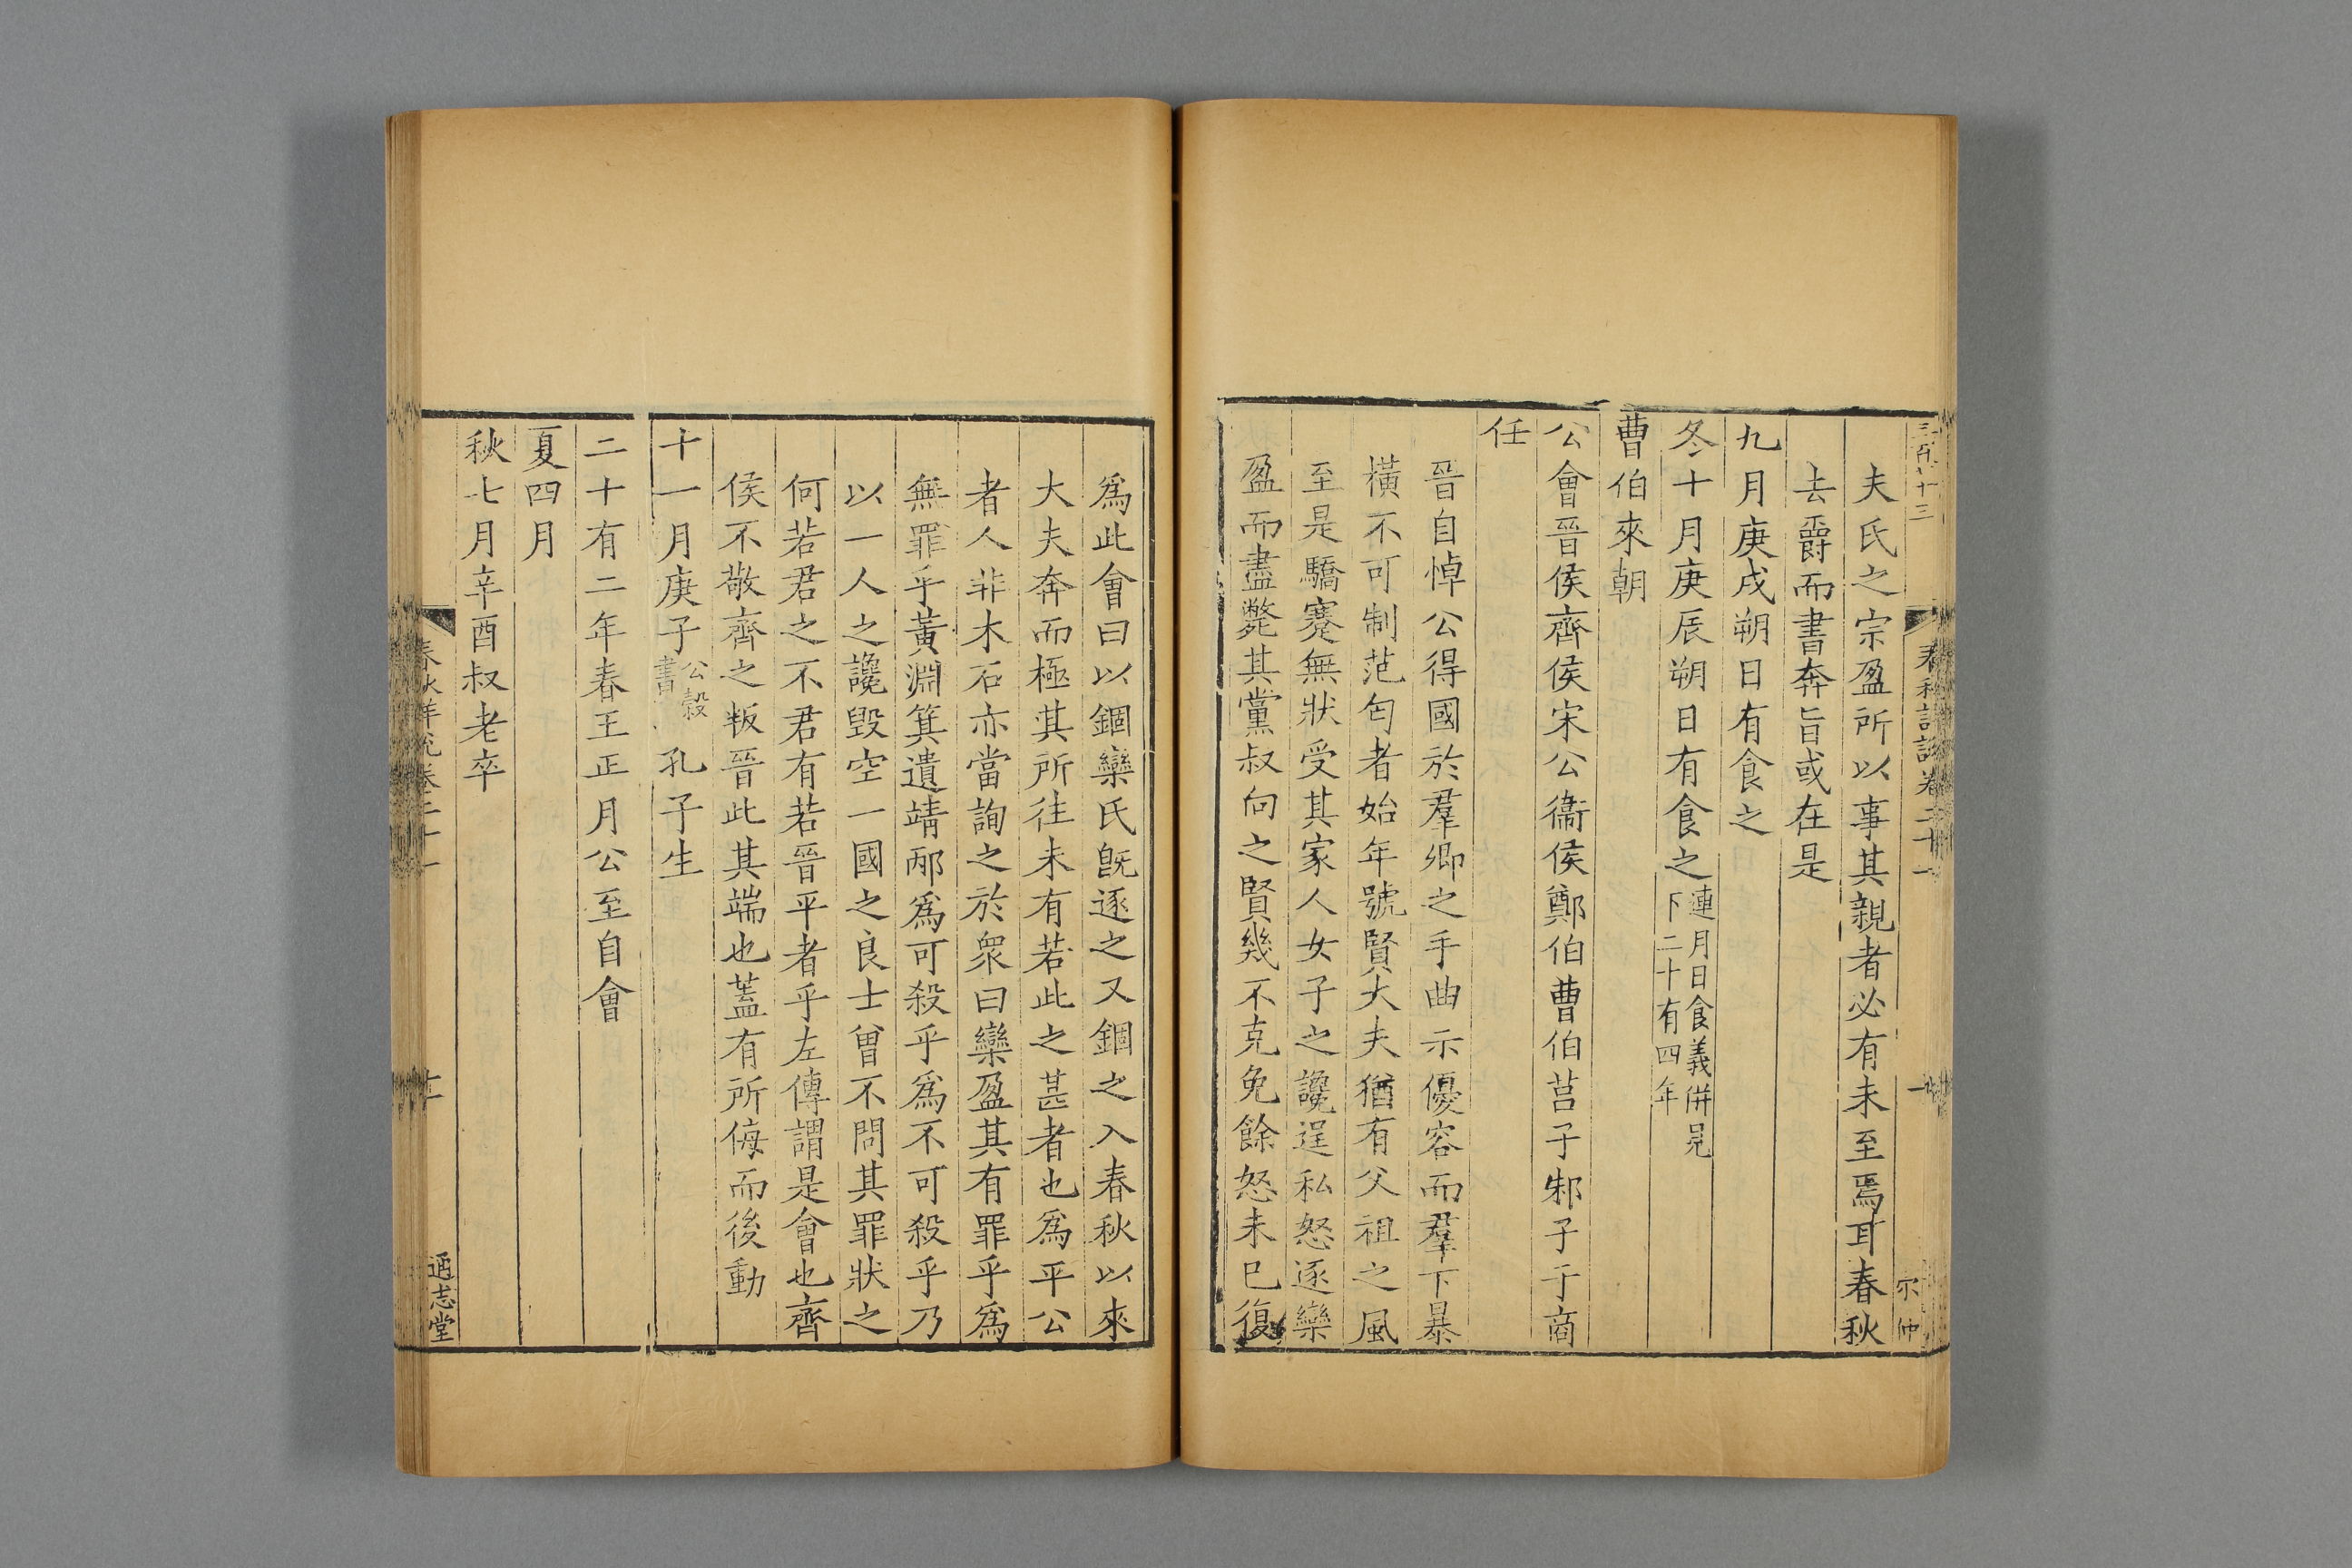 夫氏之宗盈所以事其親者必有未至焉耳春秋
去爵而書奔旨或在是
九月庚戌朔日有食之
冬十月庚辰朔日有食之連月日食義併見下二十有四年
曹伯來朝
公會晉侯齊侯宋公衞侯鄭伯曹伯莒子邾子于商
任
晉自悼公得國於羣卿之手曲示優容而羣下暴
橫不可制范匄者始年號賢大夫猶有父祖之風
至是驕蹇無狀受其家人女子之讒逞私怒逐欒
盈而盡斃其黨叔向之賢幾不克免餘怒未已復
爲此會曰以錮欒氏旣逐之又錮之入春秋以來
大夫奔而極其所往未有若此之甚者也爲平公
者人非木石亦當詢之於衆曰欒盈其有罪乎爲
無罪乎黃淵箕遺靖邴爲可殺乎爲不可殺乎乃
以一人之讒毀空一國之良士曾不問其罪狀之
何若君之不君有若晉平者乎左傳謂是會也齊
侯不敬齊之叛晉此其端也蓋有所侮而後動
十一月庚子公穀書孔子生
二十有二年春王正月公至自會
夏四月
秋七月辛酉叔老卒
春秋詳說卷二十一
通志堂